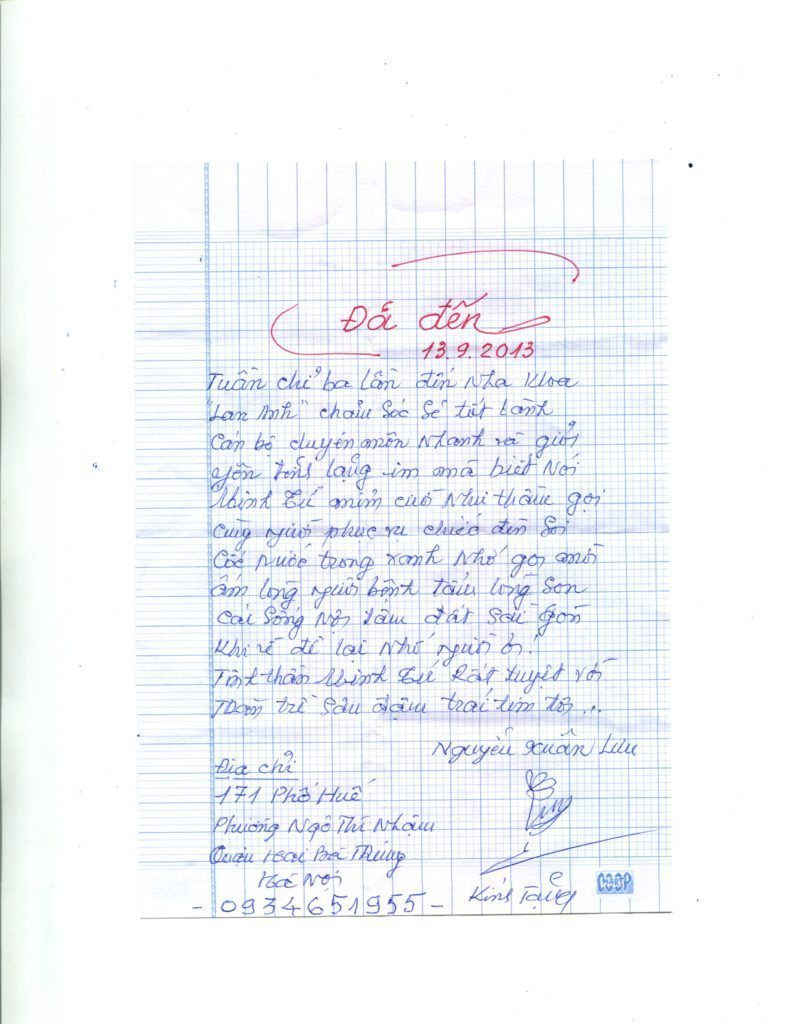 Đã đến
13.9.2013
Tuần chỉ ba lần đến Nha Khoa
"Lan Anh" chăm Sóc Sẽ tốt Lành
Cán bộ chuyên môn Nhanh và giỏi
Yên tĩnh lặng im mà biết Nói
Minh Tú mỉm cười Như thầm gọi
Cùng người phục vụ chiếc đèn Soi
Cốc Nước trong xanh Nhớ gọi mời
Ấm lòng người bệnh tấm lòng Son
Cái Sống Nội tâm đất Sài Gòn
Khi về để lại Nhớ người ơi!
Tinh thần Minh Tú Rất tuyệt vời
Tràn trề Sâu đậm trái tim tôi...
Nguyễn Xuân Lưu
Địa chỉ
171 Phố Huế
Phường Ngô Thì Nhậm
Quận Hai Bà Trưng
Hà Nội
- 0934651955 -
Kính Tặng
COOP